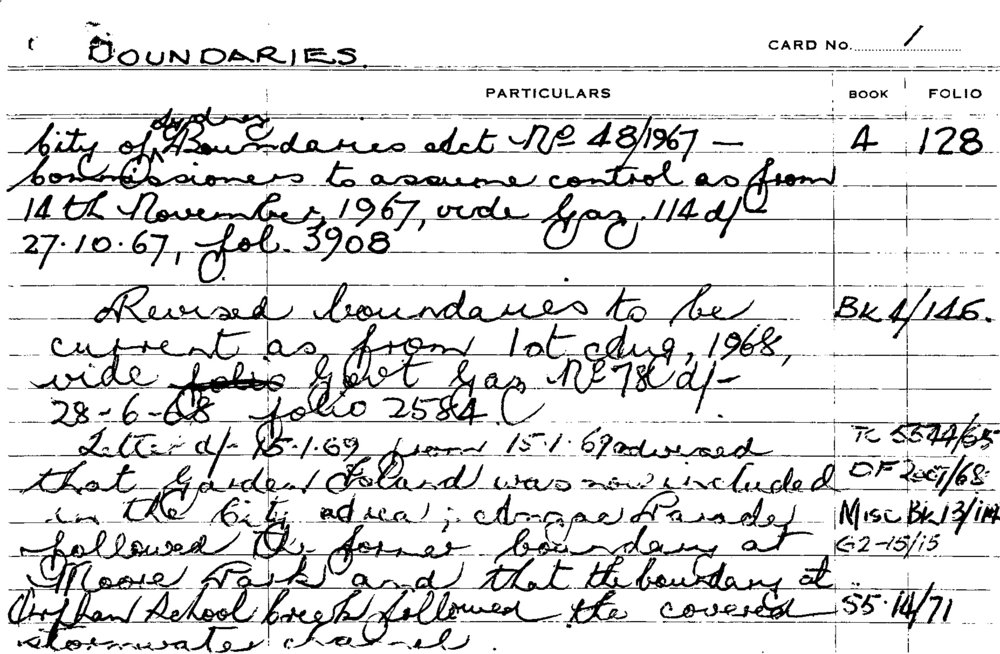 BOUNDARIES.
CARD No. 1
PARTICULARS BOOK FOLIO
Sydney
City of Boundaries Act No 48/1967 — 4 128
Commissioners to assume control as from
14th November, 1967, vide Gaz. 114 d/-
27.10.67, fol. 3908
Revised boundaries to be Bk 4/146.
current as from 1st Aug, 1968,
vide folio Govt Gaz No 78 d/-
28-6-68 folio 2584.
Letter d/- 15.1.69 from 15.1.69 advised TC 5544/65
that Garden Island was now included OF /68
in the City area; Parade Misc Bk 13/114
followed the former boundary at G2-15/15
Moore Park and that the boundary at
Orphan School Creek followed the covered SS.14/71
stormwater channel.